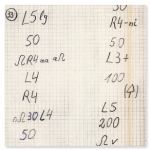 13 L5 lg
50
ΩR4 na aΩ
L4
R4
nΩ30L4
50
50
R4-ni
50
L3+
100
(φ)
L5
200
Ωv